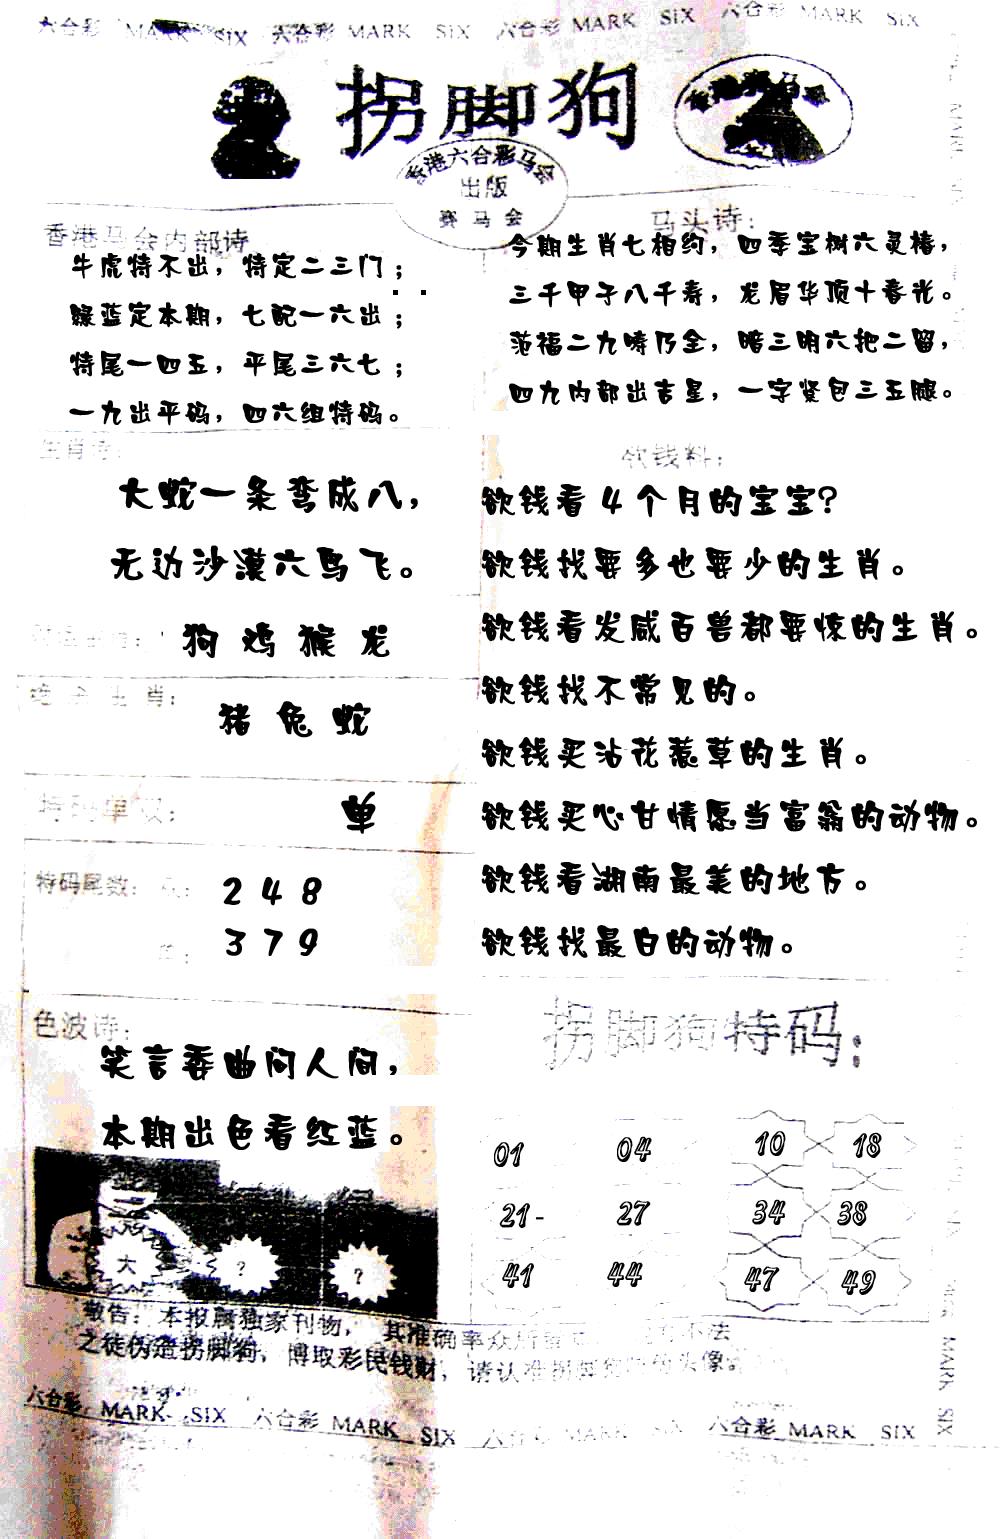 六合彩 MARK SIX 六合彩 MARK SIX 六合彩 MARK SIX 六合彩 MARK SIX
拐脚狗
香港六合彩马会
出版
赛马会
香港马会内部诗
牛虎特不出，特定二三门；
绿蓝定本期，七配一六出；
特尾一四五，平尾三六七；
一九出平码，四六组特码。
马头诗：
今期生肖七相约，四季宝树六灵椿，
三千甲子八千寿，龙眉华顶十春光。
范福二九畴乃全，暗三明六把二留，
四九内部出吉星，一字紧包三五腿。
生肖诗：
大蛇一条弯成八，
无边沙漠六鸟飞。
狗 鸡 猴 龙
绝杀生肖：
猪 兔 蛇
特码单双：
单
特码尾数：
2 4 8
3 7 9
欲钱料：
欲钱看4个月的宝宝？
欲钱找要多也要少的生肖。
欲钱看发威百兽都要惊的生肖。
欲钱找不常见的。
欲钱买沾花惹草的生肖。
欲钱买心甘情愿当富翁的动物。
欲钱看湖南最美的地方。
欲钱找最白的动物。
色波诗：
笑言委曲问人间，
本期出色看红蓝。
大 ? ?
拐脚狗特码：
01 04 10 18
21- 27 34 38
41 44 47 49
敬告：本报属独家刊物，其准确率众所
不法
之徒伪造拐脚狗，博取彩民钱财，请认准拐脚狗
头像
六合彩 MARK SIX 六合彩 MARK SIX 六合彩 MARK SIX 六合彩 MARK SIX
MARK SIX